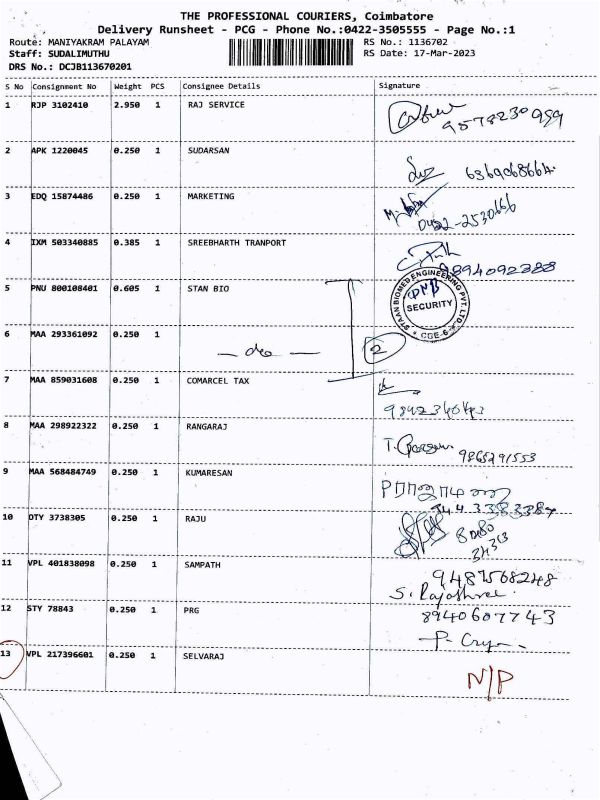 THE PROFESSIONAL COURIERS, Coimbatore
Delivery Runsheet - PCG - Phone No.:0422-3505555 - Page No.:1
Route: MANIYAKRAM PALAYAM RS No.: 1136702
Staff: SUDALIMUTHU RS Date: 17-Mar-2023
DRS No.: DCJB113670201
S No Consignment No Weight PCS Consignee Details Signature
1 RJP 3102410 2.950 1 RAJ SERVICE
9578230999
2 APK 1220045 0.250 1 SUDARSAN
6369068664
3 EDQ 15874486 0.250 1 MARKETING
0422-2530666
4 IXM 503340885 0.385 1 SREEBHARTH TRANPORT
9894092388
5 PNU 800108401 0.605 1 STAN BIO
STAAN BIOMED ENGINEERING PVT. LTD.
SECURITY
CBE-6
6 MAA 293361092 0.250 1
— do — 2
7 MAA 859031608 0.250 1 COMARCEL TAX
8 MAA 298922322 0.250 1 RANGARAJ
9865291553
9 MAA 568484749 0.250 1 KUMARESAN
10 OTY 3738305 0.250 1 RAJU
11 VPL 401838098 0.250 1 SAMPATH
9487568248
S. Rajashree
12 STY 78843 0.250 1 PRG
8940607743
13 VPL 217396601 0.250 1 SELVARAJ
N/P